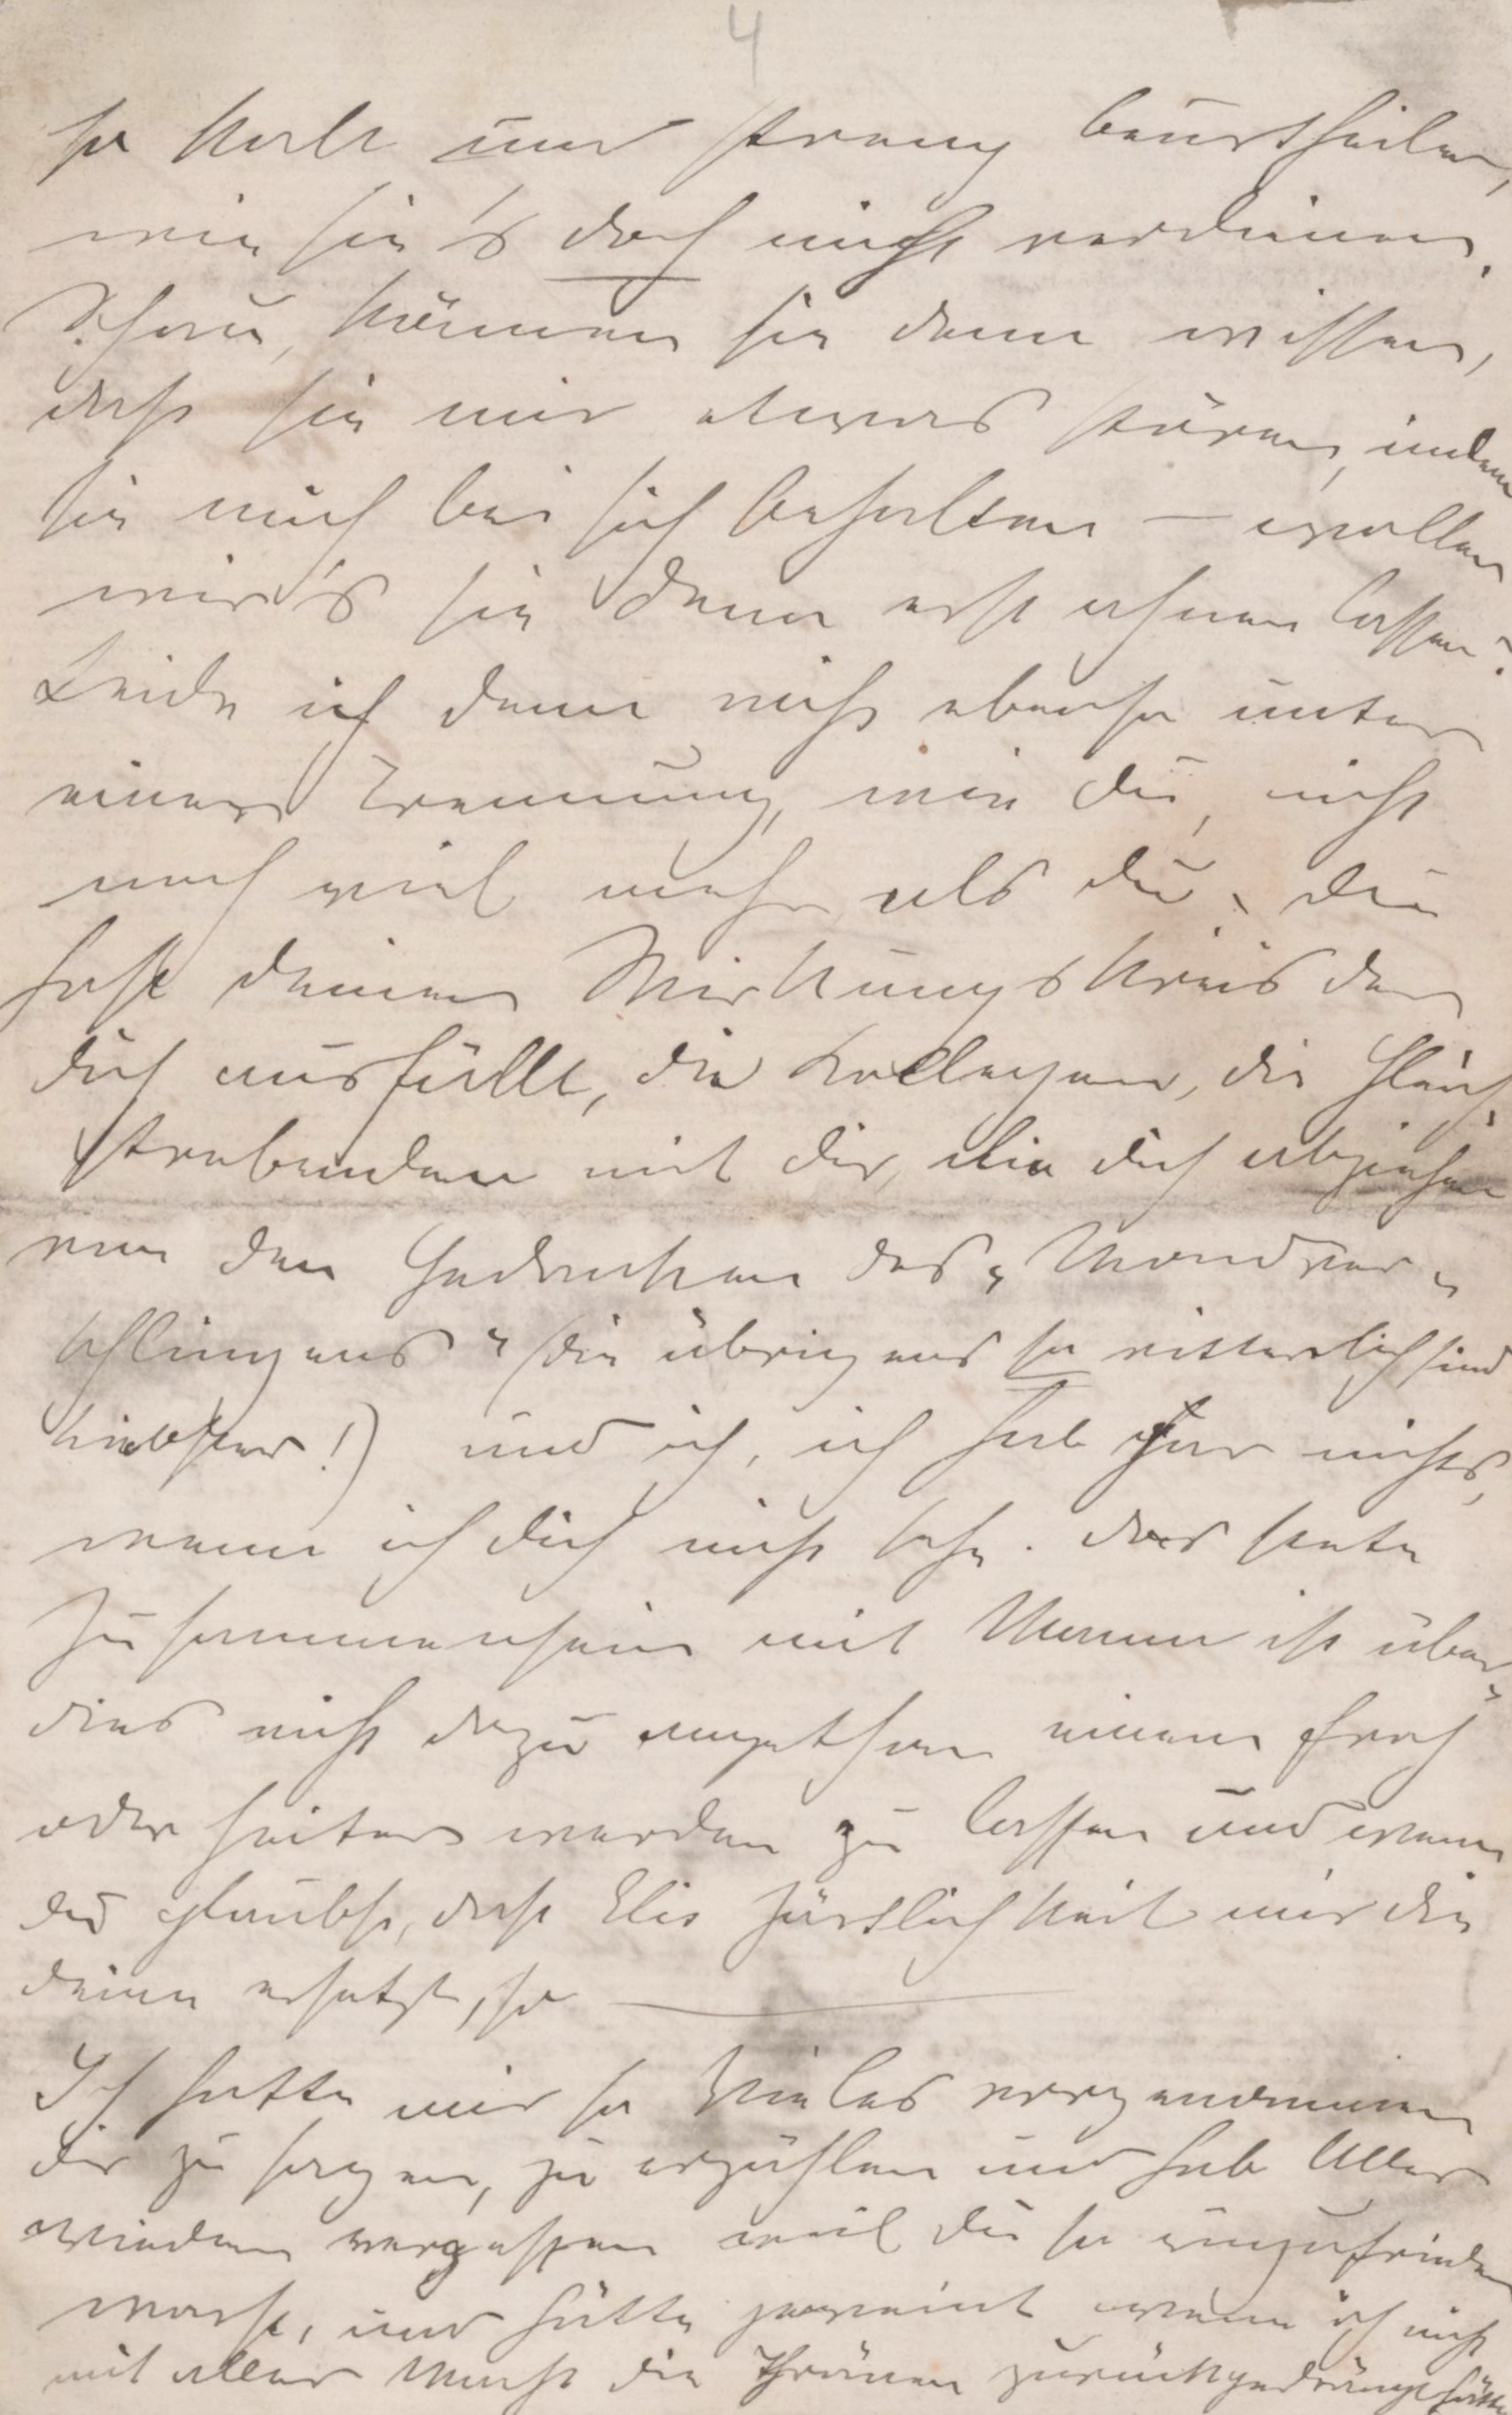 4
so kalt und streng beurtheilen,
wie sie's doch nicht verdienen.
Schau, können sie denn wissen,
dass sie mir etwas stören, indem
sie mich bei sich behalten – wollen
wir's sie denn erst ahnen lassen?
Leide ich denn nicht ebenso unter
einer Trennung, wie du, nicht
noch viel mehr als du, du
hast deinen Wirkungskreis der
dich ausfüllt, die Kollegen, die Gleich
strebenden mit dir, die dich abziehen
von den Gedanken des „Mondver-
schlingens" (die übrigens so ritterlich sind
Liebster!) und ich, ich hab gar nichts,
wenn ich dich nicht sehe. Das stete
Zusammensein mit Mama ist über-
dies nicht dazu angethan einen froh
oder heiter werden zu lassen und wenn
du glaubst, dass Elis Zärtlichkeit mir die
deine ersetzt, so —
Ich hatte mir so Vieles vorgenommen
dir zu sagen, zu erzählen und hab Alles
wieder vergessen weil du so unzufrieden
warst, und hätte geweint wenn ich nicht
mit aller Macht die Thränen zurückgedrängt hätte